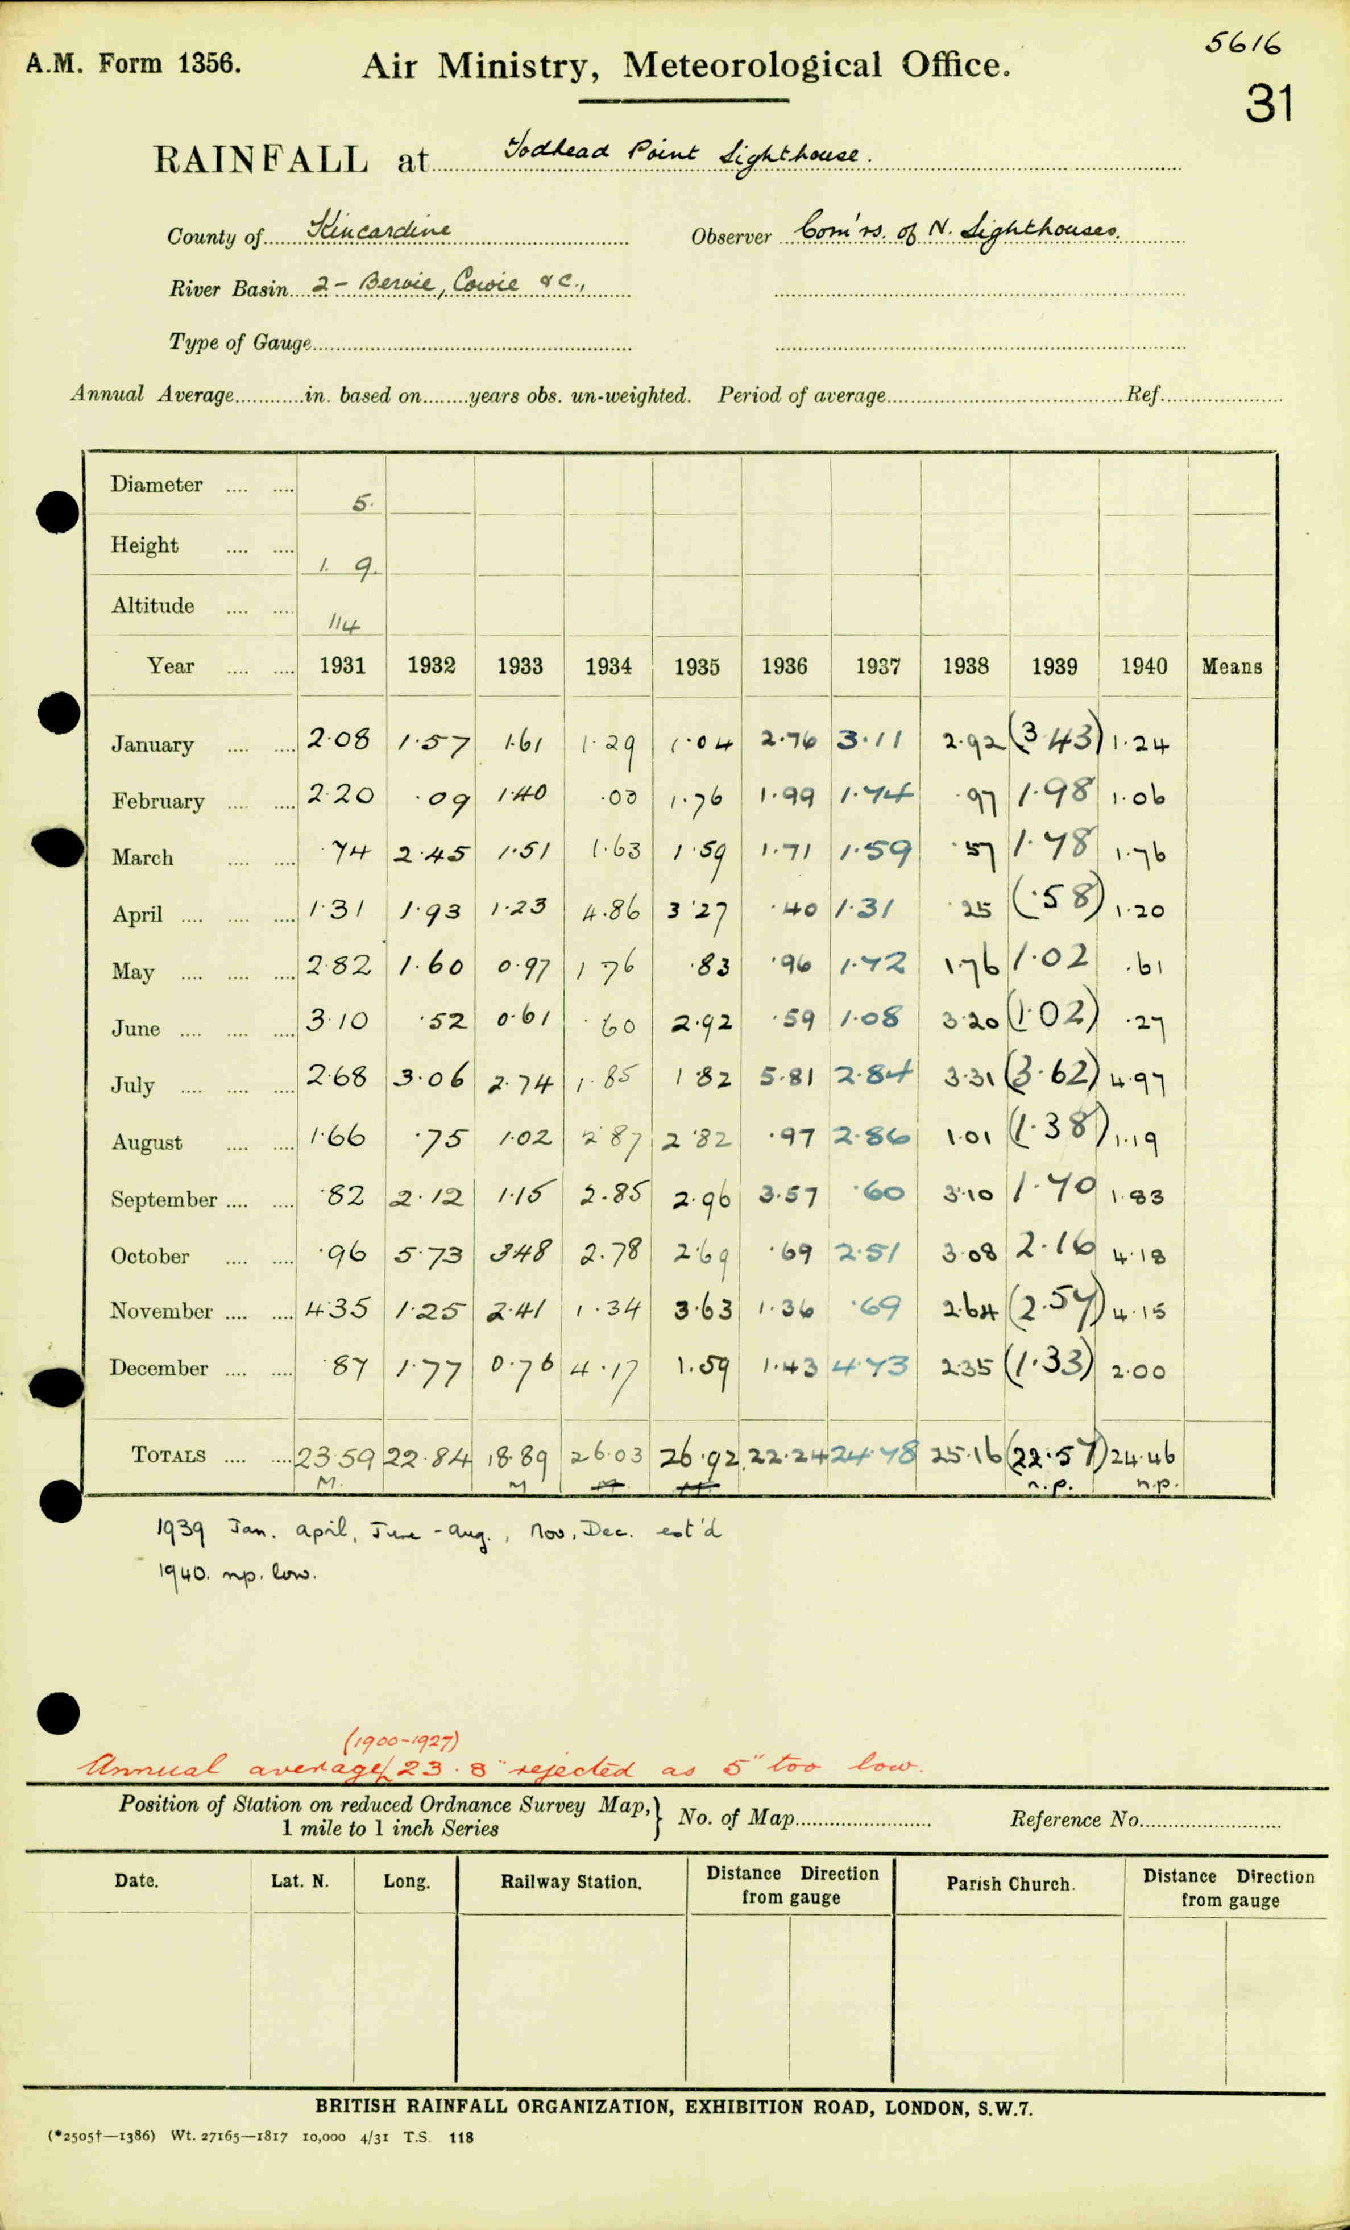 5616
A.M. Form 1356. Air Ministry, Meteorological Office.
31
RAINFALL at Todhead Point Lighthouse.
County of Kincardine Observer Com'rs. of N. Lighthouses.
River Basin 2 - Bervie, Cowie &c.,
Type of Gauge
Annual Average in. based on years obs. un-weighted. Period of average Ref.
Diameter 5.
Height 1. 9.
Altitude 114
Year 1931 1932 1933 1934 1935 1936 1937 1938 1939 1940 Means
January 2.08 1.57 1.61 1.29 1.04 2.76 3.11 2.92 (3.43) 1.24
February 2.20 .09 1.40 .03 1.76 1.99 1.74 .97 1.98 1.06
March .74 2.45 1.51 1.63 1.59 1.71 1.59 .57 1.78 1.76
April 1.31 1.93 1.23 4.86 3.27 .40 1.31 .25 (.58) 1.20
May 2.82 1.60 0.97 1.76 .83 .96 1.72 1.76 1.02 .61
June 3.10 .52 0.61 .60 2.92 .59 1.08 3.20 (1.02) .27
July 2.68 3.06 2.74 1.85 1.82 5.81 2.84 3.31 (3.62) 4.97
August 1.66 .75 1.02 2.87 2.82 .97 2.86 1.01 (1.38) 1.19
September .82 2.12 1.15 2.85 2.96 3.57 .60 3.10 1.70 1.83
October .96 5.73 3.48 2.78 2.69 .69 2.51 3.08 2.16 4.18
November 4.35 1.25 2.41 1.34 3.63 1.36 .69 2.64 (2.57) 4.15
December .87 1.77 0.76 4.17 1.59 1.43 4.73 2.35 (1.33) 2.00
TOTALS 23.59 22.84 18.89 26.03 26.92 22.24 24.78 25.16 (22.57) 24.46
M. M M M n.p. n.p.
1939 Jan. april, June - aug., Nov, Dec. est'd
1940. n.p. low.
(1900-1927)
Annual average 23.8" rejected as 5" too low.
Position of Station on reduced Ordnance Survey Map, } No. of Map Reference No.
1 mile to 1 inch Series
Date. Lat. N. Long. Railway Station. Distance Direction from gauge Parish Church. Distance Direction from gauge
BRITISH RAINFALL ORGANIZATION, EXHIBITION ROAD, LONDON, S.W.7.
(*2505†—1386) Wt. 27165—1817 10,000 4/31 T.S. 118